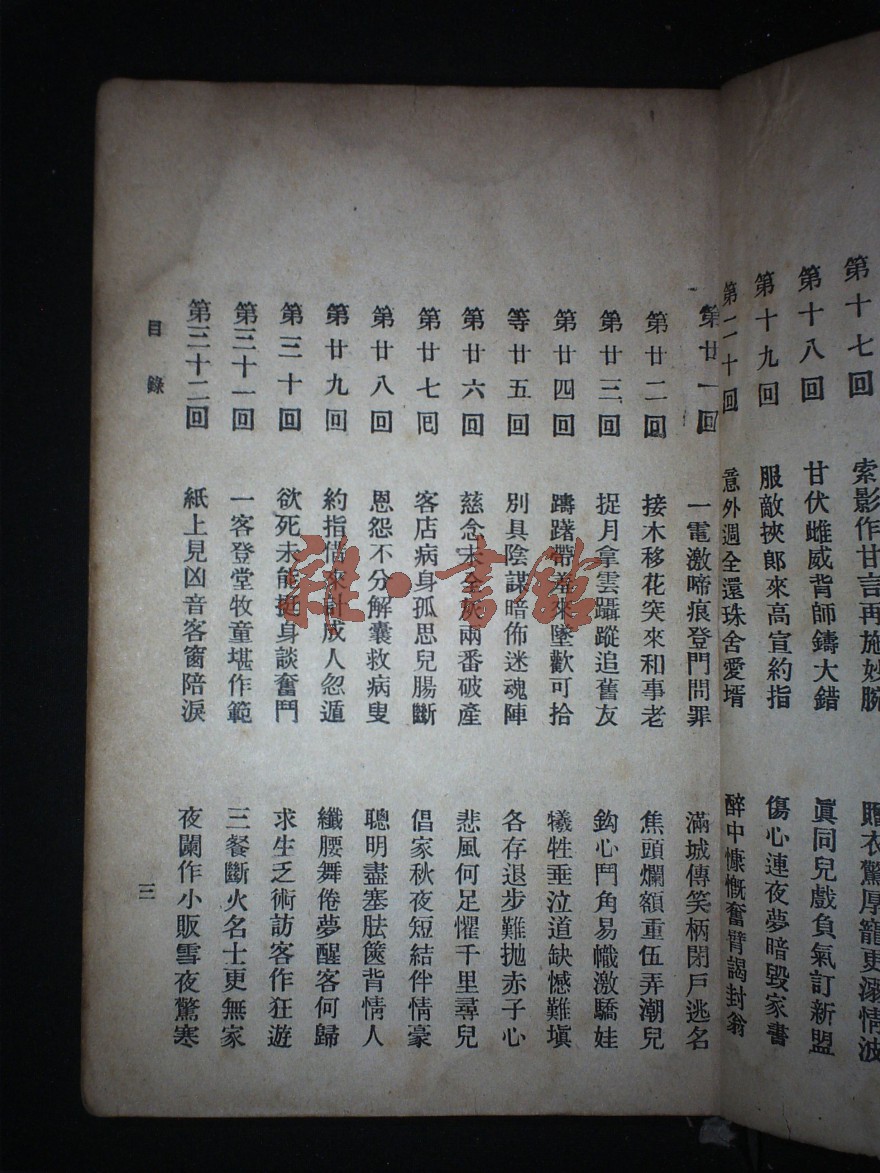 第十七回 索影作甘言再施妙腕 贈衣驚厚寵更溺情波
第十八回 甘伏雌威背師鑄大錯 眞同兒戲負氣訂新盟
第十九回 服敵挾郞來高宣約指 傷心連夜夢暗毀家書
第二十回 意外週全還珠舍愛壻 醉中慷慨奮臂謁封翁
第廿一回 一電激啼痕登門問罪 滿城傳笑柄閉戶逃名
第廿二回 接木移花突來和事老 焦頭爛額重伍弄潮兒
第廿三回 捉月拿雲躡蹤追舊友 鈎心鬥角易幟激驕娃
第廿四回 躊躇帶羞來墜歡可拾 犧牲垂泣道缺憾難塡
等廿五回 別具陰謀暗佈迷魂陣 各存退步難抛赤子心
第廿六回 慈念未全灰兩番破產 悲風何足懼千里尋兒
第廿七囘 客店病身孤思兒腸斷 倡家秋夜短結伴情豪
第廿八回 恩怨不分解囊救病叟 聰明盡塞胠篋背情人
第廿九回 約指借來計成人忽遁 纖腰舞倦夢醒客何歸
第三十回 欲死未能挺身談奮鬥 求生乏術訪客作狂遊
第三十一回 一客登堂牧童堪作範 三餐斷火名士更無家
第三十二回 紙上見凶音客窗陪淚 夜闌作小販雪夜驚寒
目錄
三
雜·書館